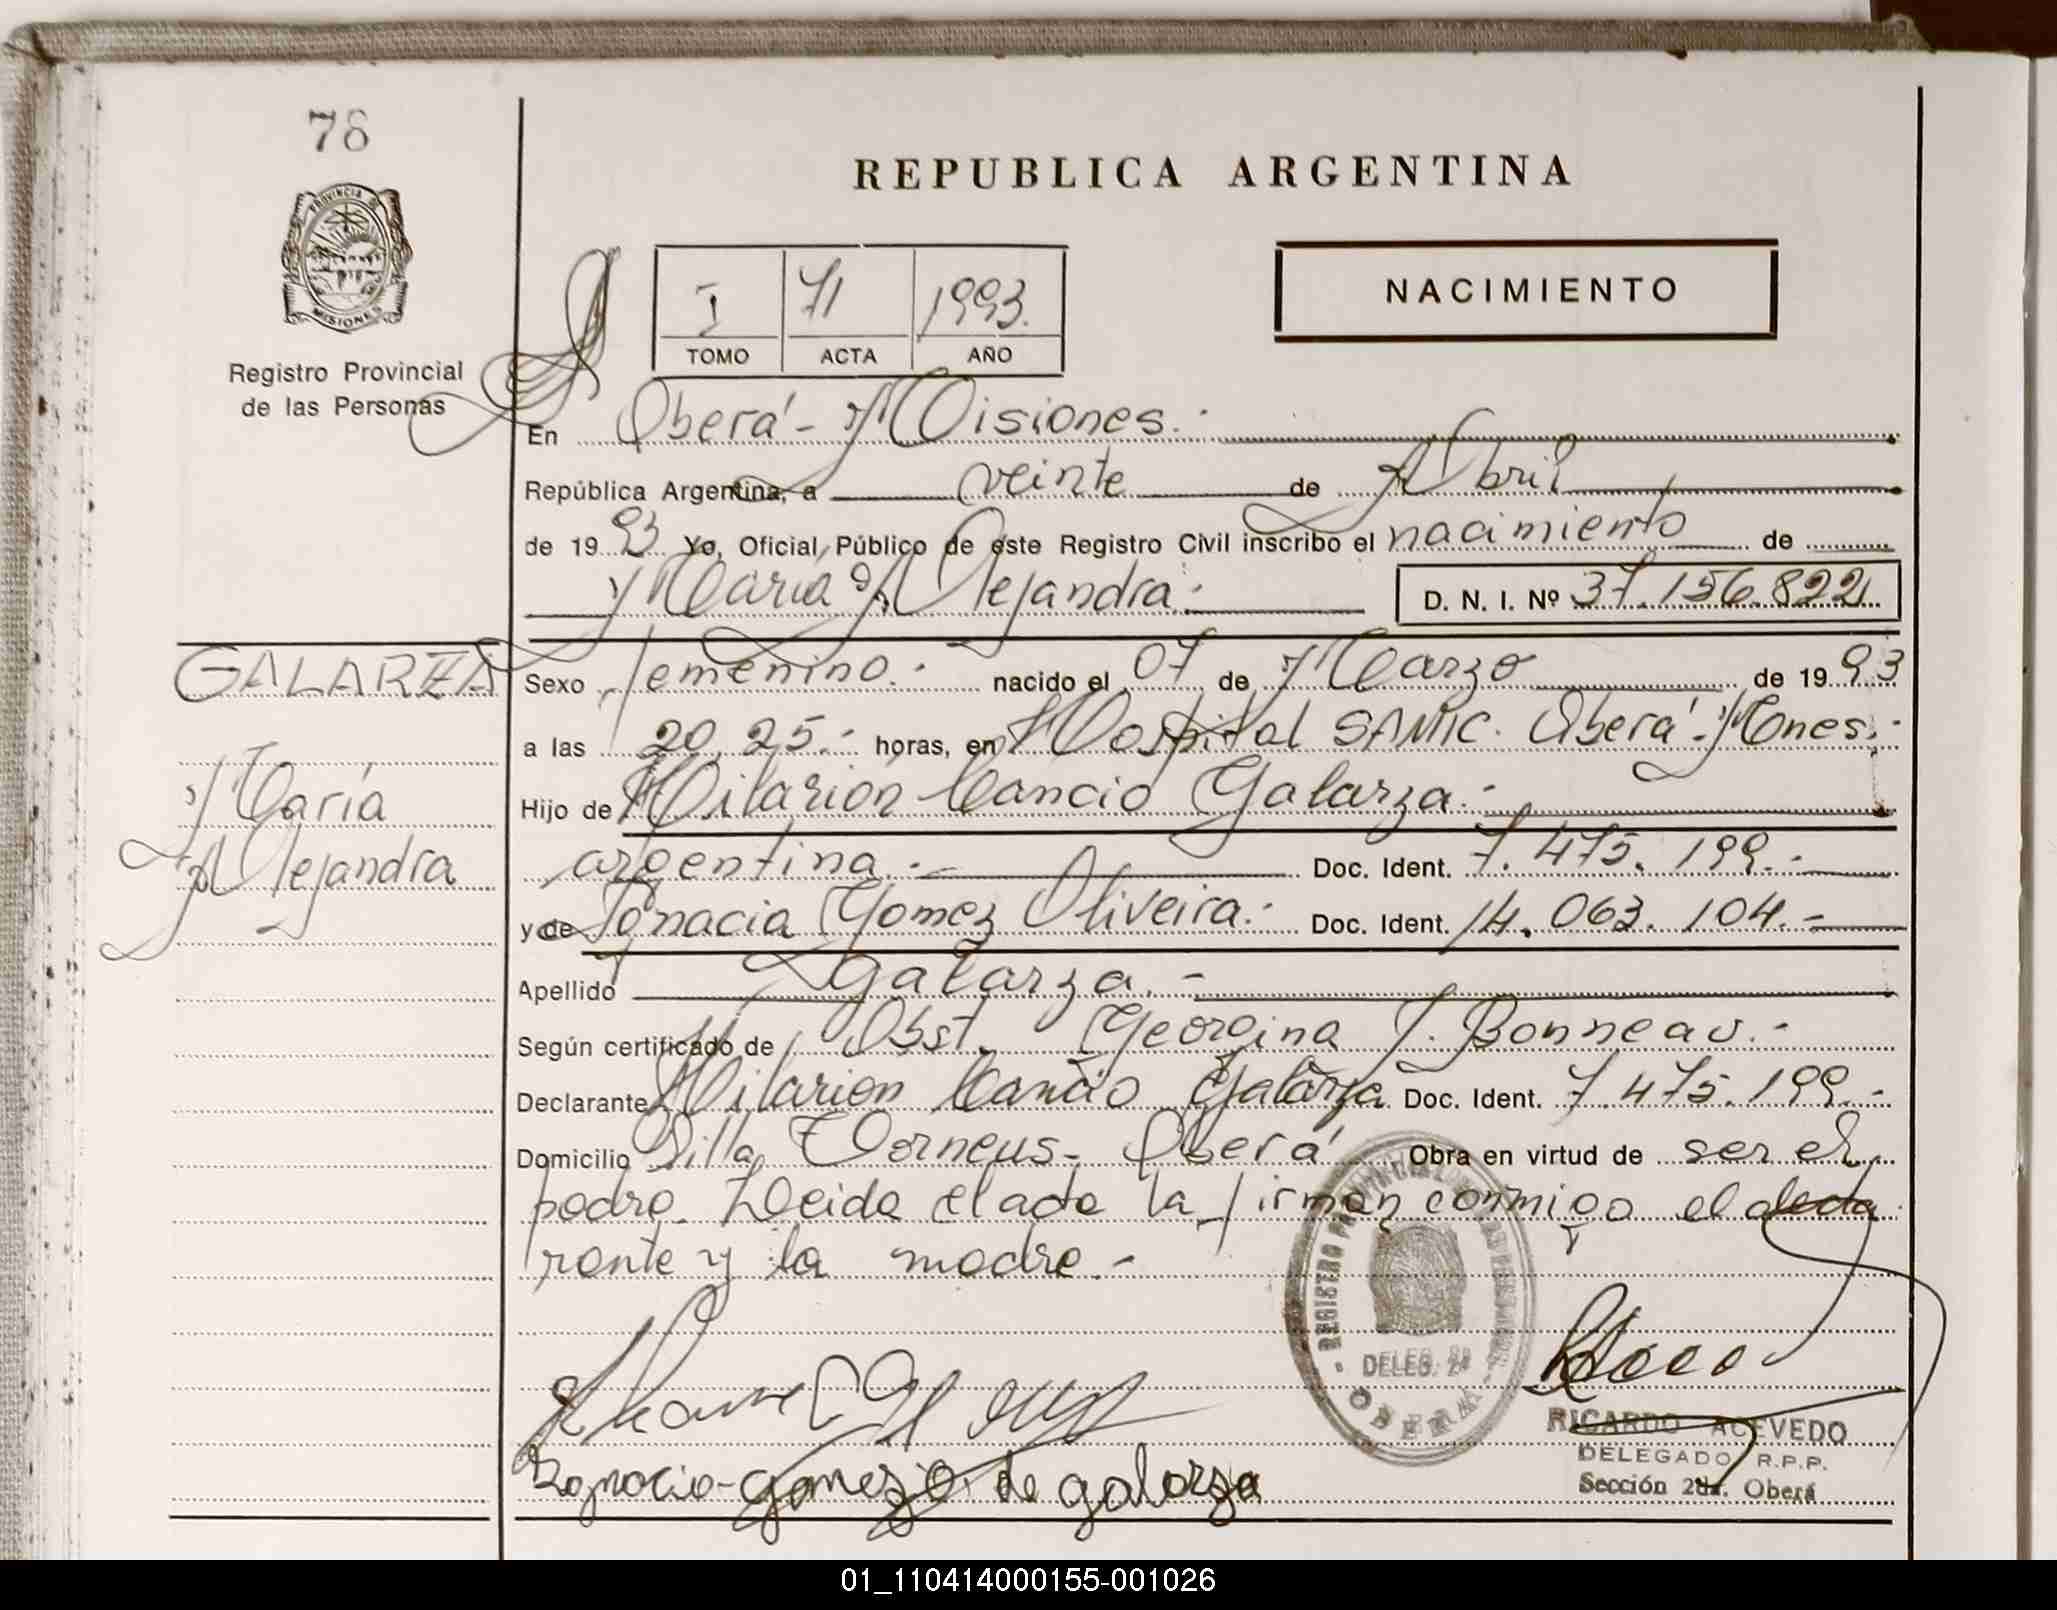 78
REPUBLICA ARGENTINA
PROVINCIA DE
MISIONES
Registro Provincial
de las Personas
I 71 1993.
TOMO ACTA AÑO
NACIMIENTO
En Oberá - Misiones.-
República Argentina, a veinte de Abril
de 1993 Yo, Oficial Público de este Registro Civil inscribo el nacimiento de
María Alejandra.- D. N. I. Nº 37.156.822
GALARZA
María
Alejandra
Sexo femenino.- nacido el 07 de Marzo de 1993
a las 20,25.- horas, en Hospital SAMIC. Oberá - Mnes.-
Hijo de Hilarión Cancio Galarza.-
argentina.- Doc. Ident. 7.475.199.-
y de Ignacia Gomez Oliveira.- Doc. Ident. 14.063.104.-
Apellido Galarza.-
Según certificado de Obst. Georgina J. Bonneau.-
Declarante Hilarion Cancio Galarza Doc. Ident. 7.475.199.-
Domicilio Villa Torneus - Oberá Obra en virtud de ser el
padre. Leida el acta la firman conmigo el decla
rante y la madre.-
REGISTRO PROVINCIAL DE LAS PERSONAS
DELEG. 2ª
OBERA
Ignacia Gomez O. de galarza
RICARDO ACEVEDO
DELEGADO R.P.P.
Sección 2da. Oberá
01_110414000155-001026